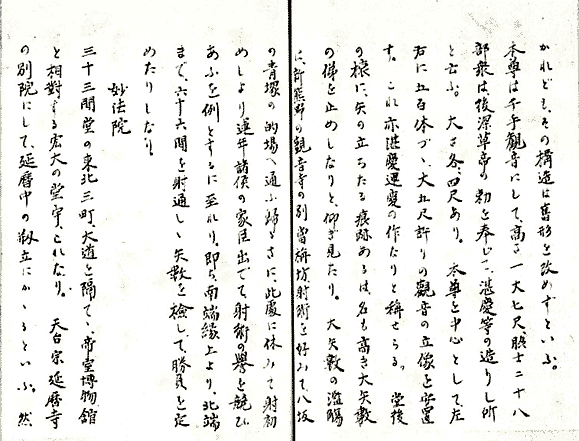 かれども、その構造は舊形を改めずといふ。
本尊は千手觀音にして、高さ一丈七尺脇士二十八
部衆は後深草帝の勅を奉じて、湛慶等の造りし所
と云ふ。大さ各、四尺あり。本尊を中心として左
右に五百体づゝ大五尺許りの觀音の立像を安置
す。これ亦湛慶運慶の作なりと稱せらる。堂後
の椽に、矢の立ちたる痕跡あるは、名も高き大矢數
の俤を止めしなりと、仰ぎ見たり。大矢數の濫觴
は、新熊野の觀音寺の別當梅坊射術を好みて、八坂
の青塚の的場へ通ふ歸るさに、此處に休みて射初
めしより、連年諸侯の家臣出でて、射術の譽を競ひ
あふを例とするに至れり。即ち、南端緣上より、北端
まで、六十六間を射通しゝ矢數を檢して勝負を定
めたりしなり。
妙法院
三十三間堂の東北三町、大道を隔てゝ、帝室博物館
と相對する宏大の堂宇、これなり。天台宗延曆寺
の別院にして、延曆中の剏立にかゝるといふ。然